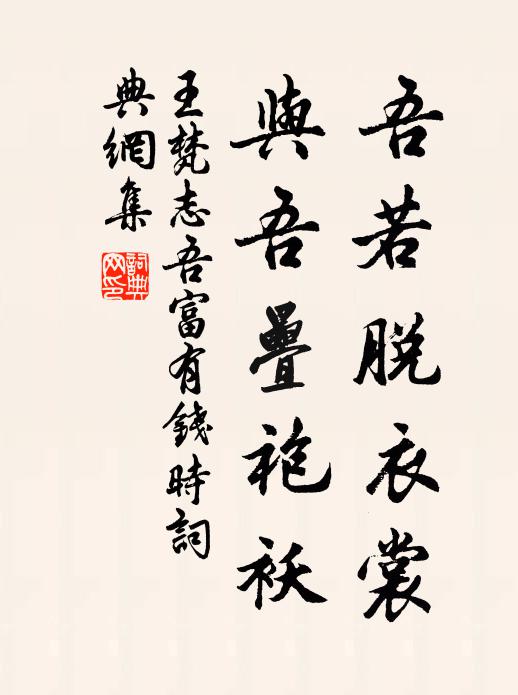 吾若脫衣裳
與吾疊袍袄
王梵志吾富有錢時詞
典網集
詞典
网印